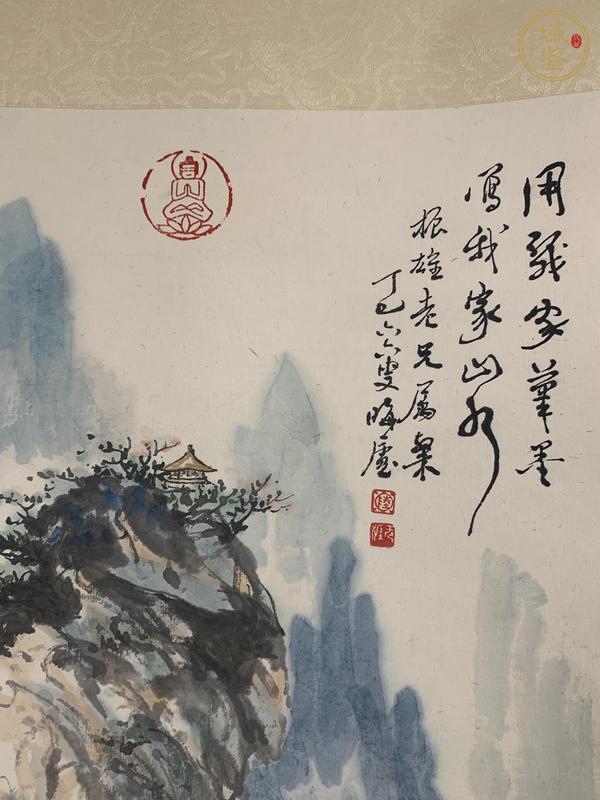 用我家筆墨
寫我家山水
振雄老兄屬粲
丁巳六六叟晦廬